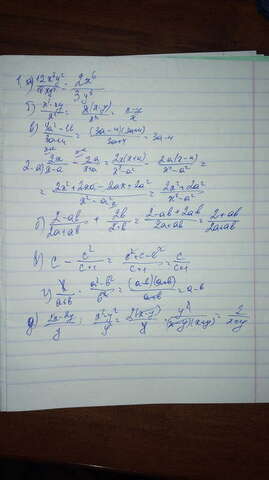 1. а) 12x⁸y² / 18x²y⁴ = 2x⁶ / 3y²
б) x²-xy / x² = x(x-y) / x² = x-y / x
в) 9a²-16 / 3a+4 = (3a-4)(3a+4) / 3a+4 = 3a-4
2. а) 2x / x-a - 2a / x+a = 2x(x+a) / x²-a² - 2a(x-a) / x²-a² =
= 2x²+2xa-2ax+2a² / x²-a² = 2x²+2a² / x²-a²
б) 2-ab / 2a+ab + 2b / 2+b = 2-ab+2ab / 2a+ab = 2+ab / 2a+ab
в) c - c² / c+1 = c²+c-c² / c+1 = c / c+1
г) a²-b² / b² = (a-b)(a+b) / a+b = a-b
д) 2x-2y / y : x²-y² / y² = 2(x-y) / y · y² / (x-y)(x+y) = 2 / x+y